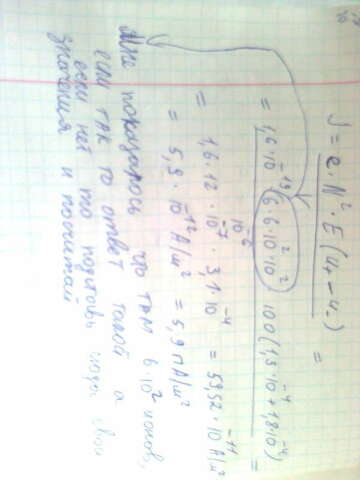 J = e · N² · E (u₊ - u₋) =
= 1,6·10⁻¹⁹ 6·6·10²·10² 100 (1,3·10⁻⁴ + 1,8·10⁻⁴) =
10⁻⁶
= 1,6·12·10⁻⁷ · 3,1·10⁻⁴ = 59,52·10⁻¹¹ А/м²
= 5,9·10⁻¹² А/м² = 5,9 пА/м²
Мне показалось что там 6·10² ионов,
если так то ответ такой а
если нет то подставь сюда свои
значения и посчитай